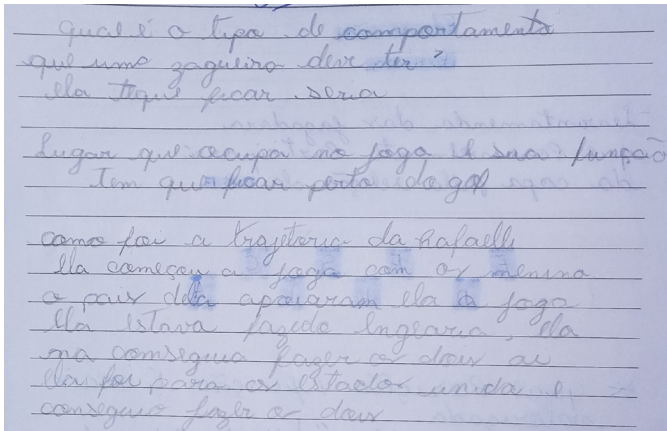 qual é o tipo de comportamento
que uma zagueira deve ter?
Ela tique ficar seria
Lugar que ocupa no jogo e sua função
Tem que ficar perto do gol
como foi a trajetoria da Rafaelle
Ela começou a joga com os menino
o pais dela apoiaram ela a joga
Ela estava fazedo Engearia, ela
na conseguia fazer os dois ai
Ela foi para os estados unida e
conseguio fazer os dois